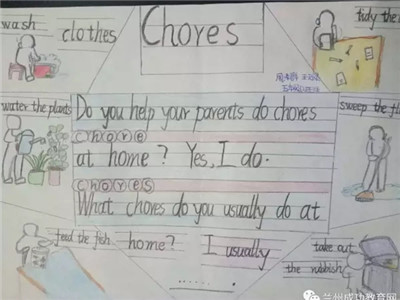 wash clothes
Chores
tidy the
water the plants
Do you help your parents do chores
sweep the fl
chore
at home? Yes, I do.
chores
What chores do you usually do at
feed the fish
home? I usually
take out
the rubbish
.......
兰州成功教育网